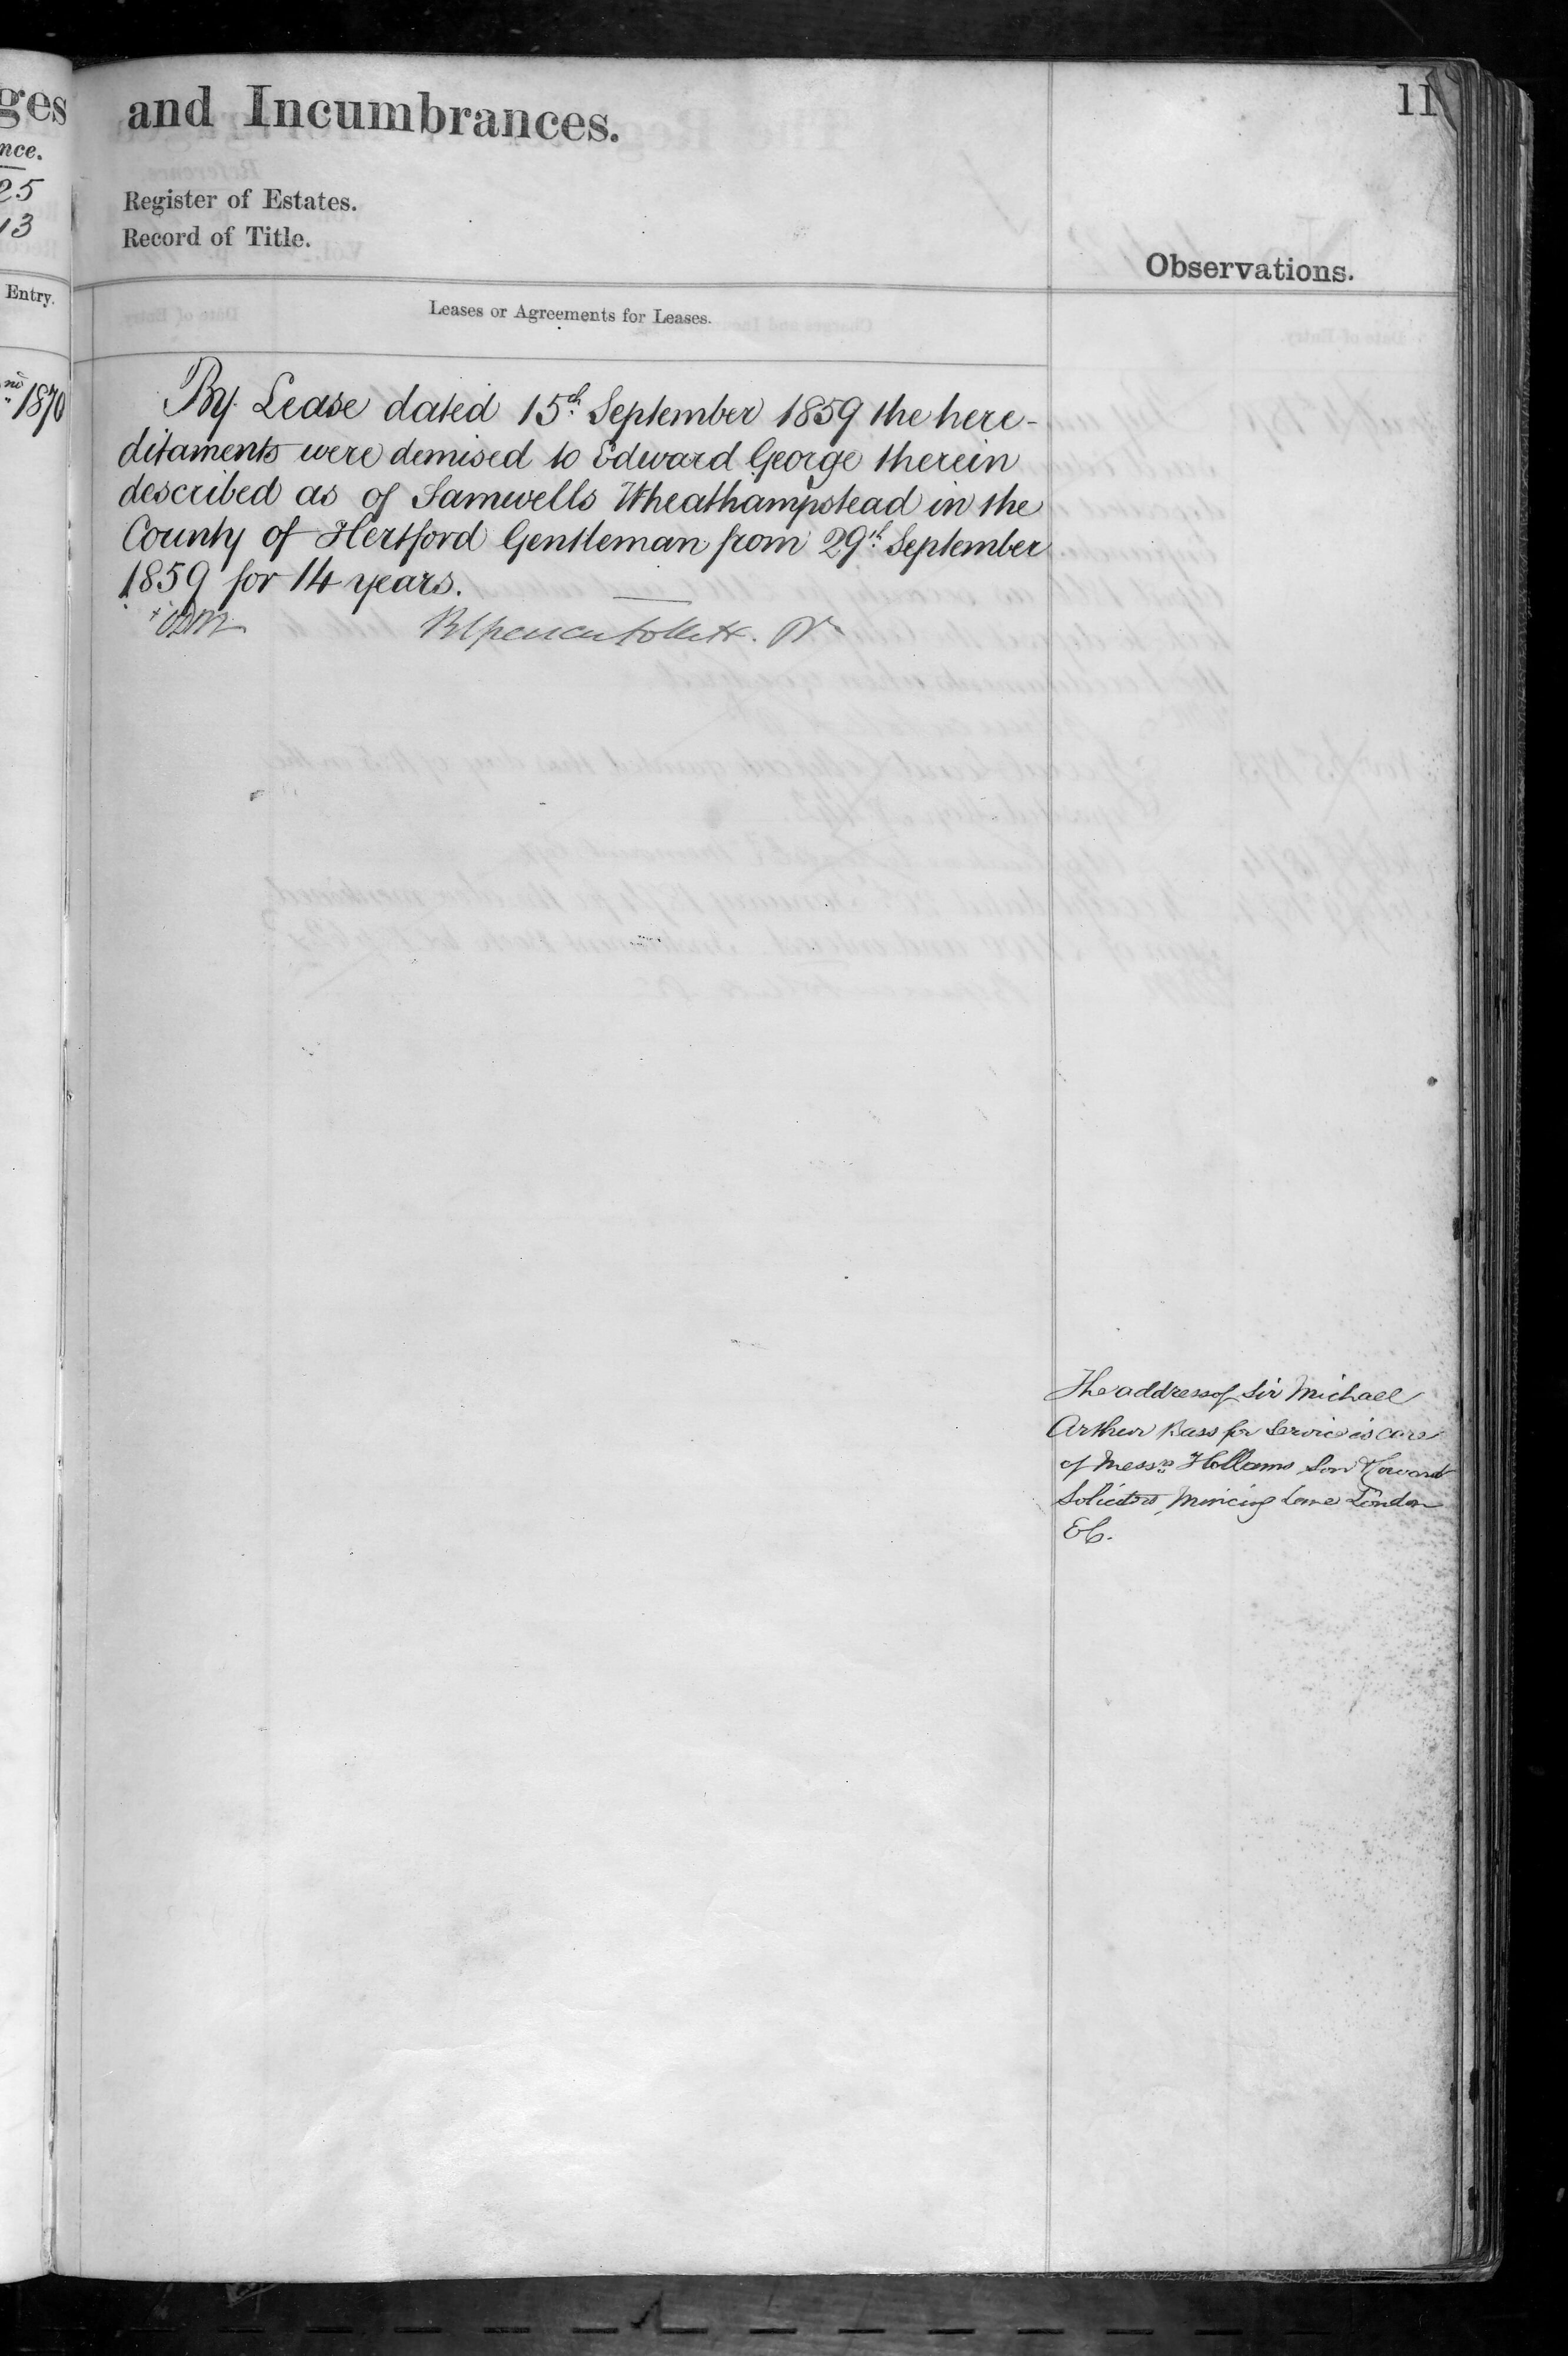 ges
nce.
25
13
Entry.
1870
and Incumbrances.
11
Register of Estates.
Record of Title.
Observations.
Leases or Agreements for Leases.
By Lease dated 15th September 1859 the here-
ditaments were demised to Edward George therein
described as of Samwells Wheathampstead in the
County of Hertford Gentleman from 29th September
1859 for 14 years.
The address of Sir Michael
Arthur Bass for Service is care
of Messrs Hollams Son & Coward
Solicitors, Mincing Lane London
EC.